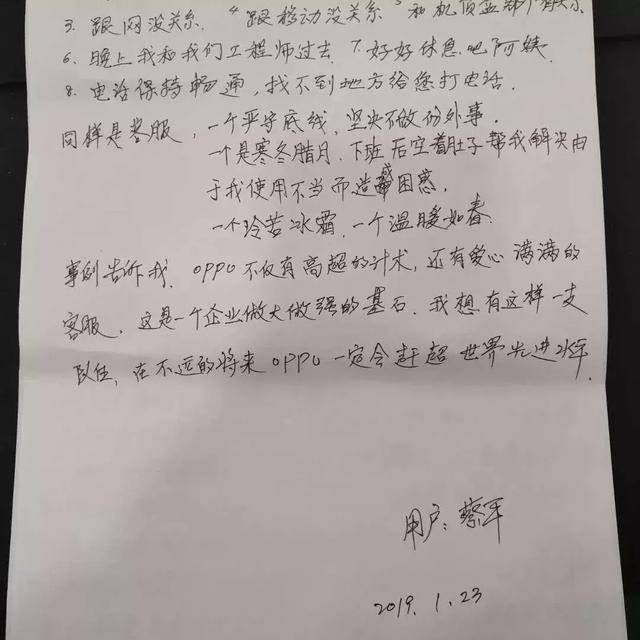 3. 跟网没关系. 4 跟移动没关系 5 和机顶盒
6. 晚上我和我们工程师过去. 7. 好好休息吧阿姨.
8. 电话保持畅通, 找不到地方给您打电话.
同样是客服, 一个严守底线, 坚决不做份外事.
一个是寒冬腊月. 下班后空着肚子帮我解决由
于我使用不当而造成困惑.
一个冷若冰霜, 一个温暖如春.
事例告诉我. OPPO 不仅有高超的计术, 还有爱心满满的
客服. 这是一个企业做大做强的基石. 我想有这样一支
队伍, 在不远的将来 OPPO 一定会赶超世界先进水平.
用户: 蔡军
2019. 1. 23